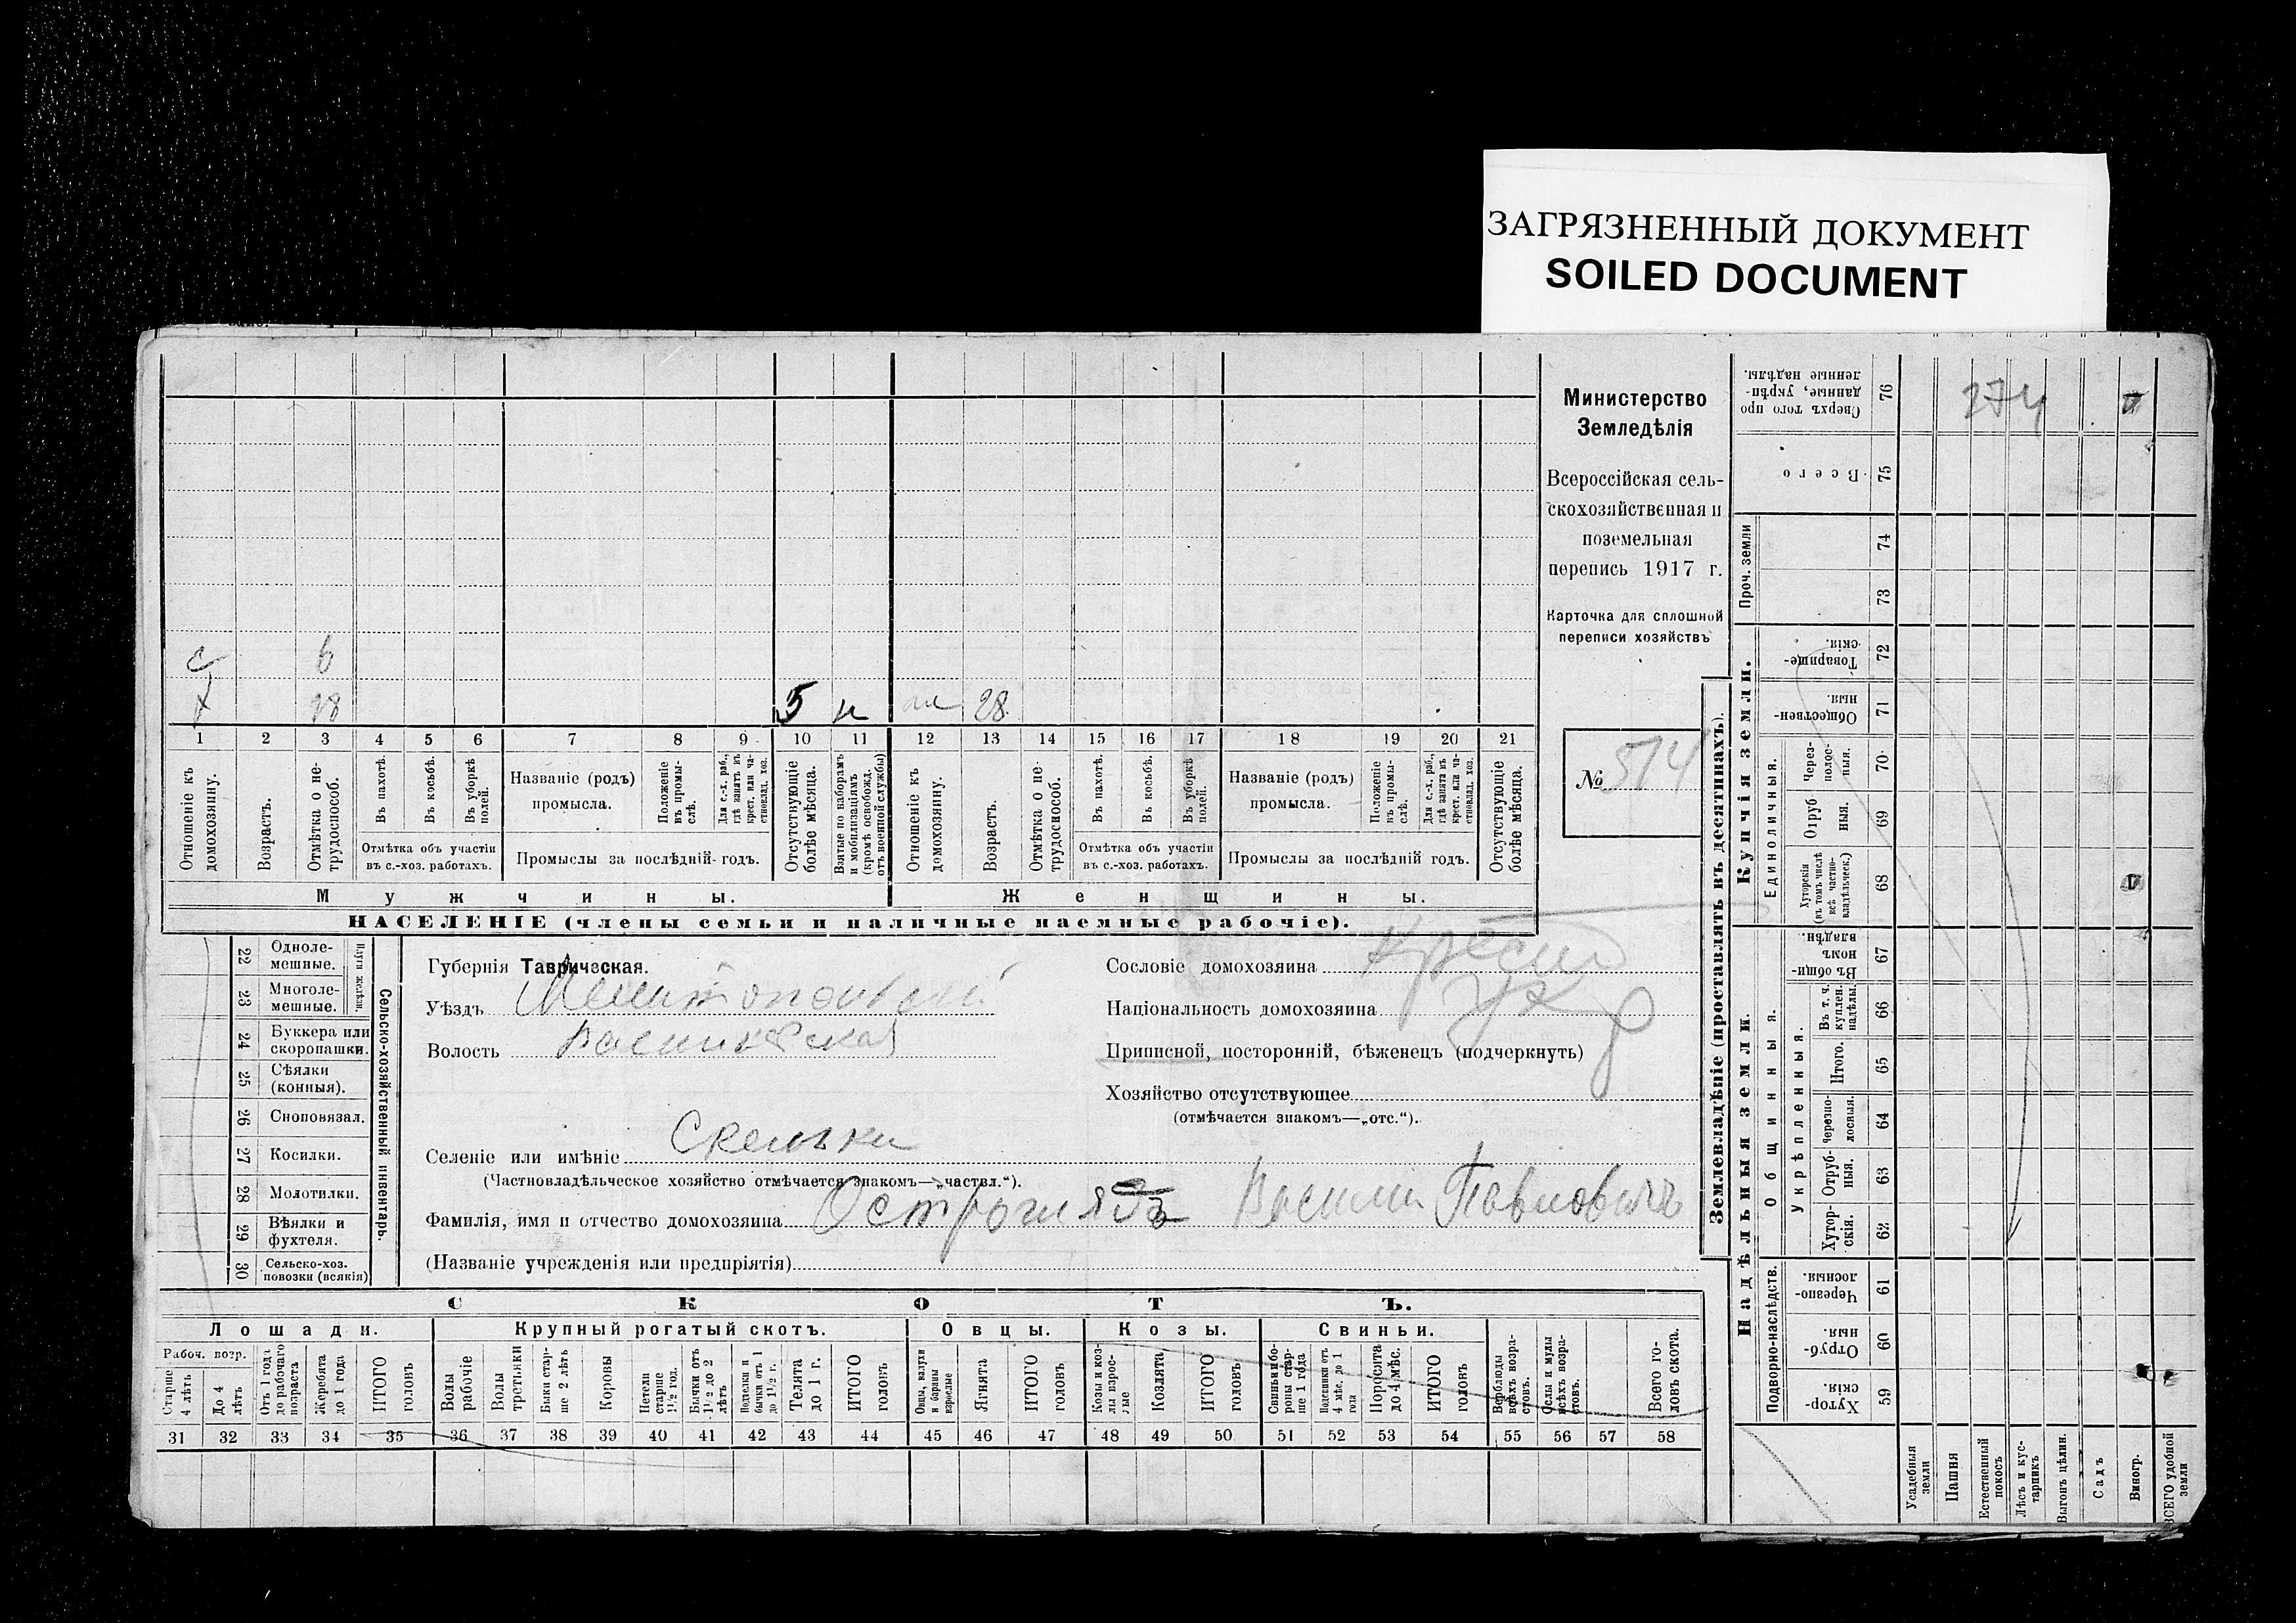 ЗАГРЯЗНЕННЫЙ ДОКУМЕНТ
SOILED DOCUMENT
Министерство
Земледѣлія
Всероссійская сель-
скохозяйственная и
поземельная
перепись 1917 г.
Карточка для сплошной
переписи хозяйствъ
№ 514
с 6
х 38 5 н 28
1 2 3 4 5 6 7 8 9 10 11 12 13 14 15 16 17 18 19 20 21
Отношеніе къ домохозяину.
Возрастъ.
Отмѣтка о не-трудоспособ.
Въ пахотѣ.
Въ косьбѣ.
Въ уборкѣ полей.
Отмѣтка объ участіи
въ с.-хоз. работахъ.
Названіе (родъ)
промысла.
Положеніе въ промы-слѣ.
Для с.-х. раб., гдѣ занятъ въ крест. или ча-стновлад. хоз.
Промыслы за послѣдній годъ.
Отсутствующіе болѣе мѣсяца.
Взятые по наборамъ и мобилизаціямъ (кромѣ освобожд. отъ военной службы)
Отношеніе къ домохозяину.
Возрастъ.
Отмѣтка о не-трудоспособ.
Въ пахотѣ.
Въ косьбѣ.
Въ уборкѣ полей.
Отмѣтка объ участіи
въ с.-хоз. работахъ.
Названіе (родъ)
промысла.
Положеніе въ промы-слѣ.
Для с.-х. раб., гдѣ занята въ крест. или ча-стновлад. хоз.
Промыслы за послѣдній годъ.
Отсутствующіе болѣе мѣсяца.
Мужчины. Женщины.
НАСЕЛЕНІЕ (члены семьи и наличные наемные рабочіе).
Сельско-хозяйственный инвентарь.
Плуги желѣзн.
22 Одноле-мешные.
23 Многоле-мешные.
24 Буккера или скоропашки.
25 Сѣялки (конныя).
26 Сноповязал.
27 Косилки.
28 Молотилки.
29 Вѣялки и фухтеля.
30 Сельско-хоз. повозки (всякія)
Губернія Таврическая.
Уѣздъ Мелитопольскій
Волость Васильевская
Селеніе или имѣніе Скельки
(Частновладѣльческое хозяйство отмѣчается знакомъ—„частвл.“).
Фамилія, имя и отчество домохозяина Остроглядъ Василий Павловичъ
(Названіе учрежденія или предпріятія)
Сословіе домохозяина Крест
Національность домохозяина Укр
Приписной, посторонній, бѣженецъ (подчеркнуть)
Хозяйство отсутствующее
(отмѣчается знакомъ—„отс.“).
СКОТЪ.
Лошади. Крупный рогатый скотъ. Овцы. Козы. Свиньи.
Рабоч. возр.
Старше 4 лѣтъ
До 4 лѣтъ
Отъ 1 года до рабочаго возраста
Жеребята до 1 года
ИТОГО головъ
Волы рабочіе
Волы третьяки
Быки стар-ше 2 лѣтъ
Коровы
Нетели старше 1½ год.
Бычки отъ 1½ до 2 лѣтъ
Подтелки и бычки отъ 1 до 1½ г.
Телята до 1 г.
ИТОГО головъ
Овцы, валухи и бараны взрослые
Ягнята
ИТОГО головъ
Козы и коз-лы взрос-лые
Козлята
ИТОГО головъ
Свиньи и бо-ровы стар-ше 1 года
Подсвинки отъ 4 мѣс. до 1 года
Поросята до 4 мѣс.
ИТОГО головъ
Верблюды всѣхъ возра-стовъ.
Ослы и мулы всѣхъ возра-стовъ.
Всего го-ловъ скота.
31 32 33 34 35 36 37 38 39 40 41 42 43 44 45 46 47 48 49 50 51 52 53 54 55 56 57 58
Землевладѣніе (проставлять въ десятинахъ).
Купчія земли.
Надѣльныя земли.
Проч. земли
Единоличныя.
Общинныя.
Укрѣпленныя.
Подворно-наслѣдств.
Сверхъ того про данные, укрѣп-ленные надѣлы. 76 274
Всего 75
74
73
Товарище-скія. 72
Обществен-ныя. 71
Через-полос-ныя. 70
Отруб ныя. 69
Хуторскія (въ томъ числѣ всѣ частно-владѣльческ.) 68
Въ общи-номъ владѣн. 67
Въ т. ч. куплен. надѣлы. 66
Итого. 65
Черезпо-лосныя. 64
Отруб-ныя. 63
Хутор-скія. 62
Черезпо-лосныя. 61
Отруб-ныя. 60
Хутор-скія 59
Усадебныя земли
Пашня
Естественный покосъ
Лѣсъ и кус-тарникъ
Выгонъ цѣлин.
Садъ
Виногр.
ВСЕГО удобной земли